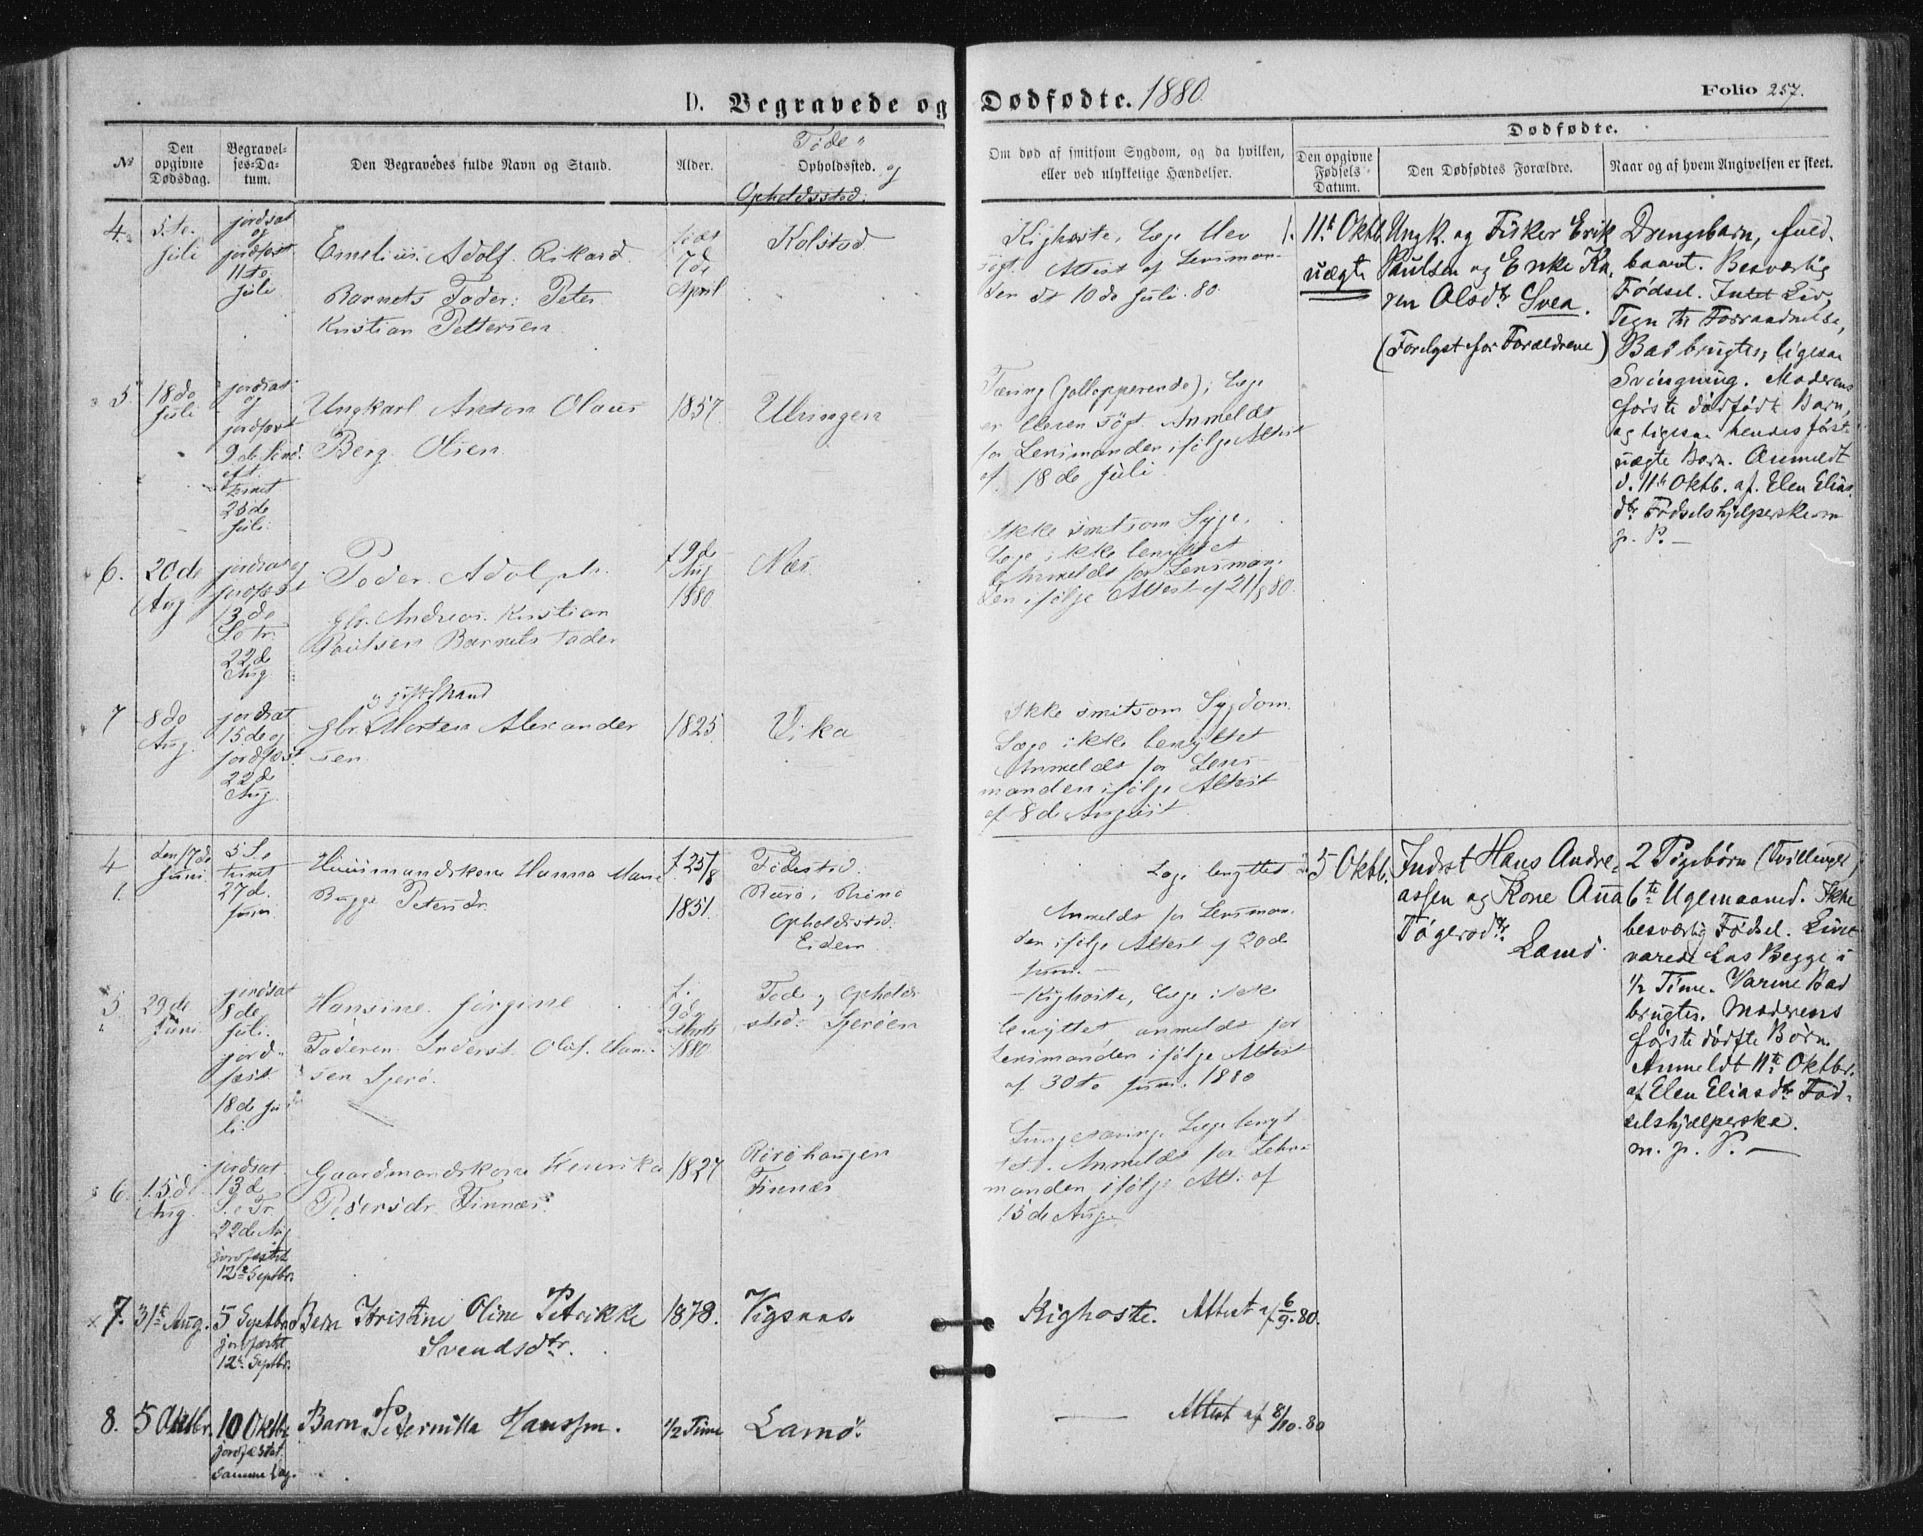 D. Begravede og Dødfødte. 1880.
Folio 257.
№
Den opgivne Dødsdag.
Begravelses-Datum.
Den Begravedes fulde Navn og Stand.
Alder.
Føde-
Opholdssted. og
Opholdssted.
Om død af smitsom Sygdom, og da hvilken,
eller ved ulykkelige Hændelser.
Dødfødte.
Den opgivne Fødsels-Datum.
Den Dødfødtes Forældre.
Naar og af hvem Angivelsen er skeet.
4.
5te
Juli
jordsat
og
jordfæst
11te
Juli
Emelius Adolf Rikard
Barnets Fader: Peter
Kristian Pettersen
7de
April
Kolstad
Kighoste, Læge
Attest af Lensman-
den dt 10de Juli 80.
1. 11te Oktb.
uægte
Ungk. og Fisker Erik
Paulsen og Enke Ka-
ren Olsdtr Svea.
(Forelyst for Forældrene)
Drengebarn, fuld-
baaret. Besværlig
Fødsel. Intet Liv,
Tegn til Forraadnelse,
Bad brugtes, ligesaa
Svingning. Moderens
første dødfødt Barn,
og ligesaa hendes først
uægte Barn. Anmeldt
d. 11te Oktb. af Elen Elias-
dtr Fødselshjelperske m
p. P. —
5.
18de
Juli
jordsat
og
jordfæst
9de Sønd.
eft.
trinet
25de
Juli
Ungkarl Anton Olaus
Berg Olsen
1857.
Ulvingen
Tæring (gallopperende), Læge
er søgt. Anmeldt
for Lensmanden ifølge Attest
af 18de Juli
6.
20de
Aug
jordsat og
jordfæst
13de
S. e. Tr.
22de
Aug
Peder Adolph
gbr. Andreas Kristian
Paulsen Barnets Fader
f. 9de
Aug
1880
Næs
Ikke smitsom Syge,
Læge ikke benyttet
Anmeldt for Lensman-
den ifølge Attest af 21/8 80.
7
8de
Aug.
jordsat
15de og
jordfæst.
22de
Aug.
gift Mand
gbr. Morten Alexander
sen
1825
Vika
Ikke smitsom Sygdom
Læge ikke benyttet
Anmeldt for Lens-
manden ifølge Attest
af 8de August
4
1.
den 17de
Juni
5 S. e.
trinet
27d.
Juni
Huusmandskone Hanna Marie
Bugge Petersdr
f. 25/8
1851.
Fødested:
Opholdssted:
Eidem
Læge benyttet
Anmeldt for Lensman-
den ifølge Attest af 20de
Juni. —
5 Oktb.
Inderst Hans Andre-
assen og Kone Anna
Tøgersdtr
Lamø.
2 Pigebørn (Tvillinger),
6te Ugemaaned. Ikke
besværlig Fødsel. Livet
varede hos Begge i
1/2 Time. Varme Bad
brugtes. Moderens
første dødfte Børn.
Anmeldt 11te Oktbr.
af Elen Eliasdtr Fød-
selshjælperske.
m. p. P. —
5
29de
Juni
jordsat
8de
Juli
jord-
fæst
18de Ju
li
Hansine Jørgine
Faderen Inderst Oluf Han-
sen Sjerø.
f.
9de
Marts
1880
Føde og Opholds
sted: Sjerøen
Kighoste, Læge ikke
benyttet anmeldt for
Lensmanden ifølge Attest
af 30te Juni 1880
6.
15de
Aug.
jordsat
13de
S. e. Tr.
22de Aug
jordfæstet
12te Septbr.
Gaardmandskone Henrika
Pedersdr Finnæs
1827
Rørøhaugen
Finnæs
Lungetæring. Læge benyt
tet. Anmeldt for Lehns
manden ifølge Att: af
15de Aug.
7.
31te Aug.
5 Septbr
jordfæstet
12te Septbr.
Barn Kristine Oline Petrikke
Svendsdtr.
1878.
Vigsnæs
Kighoste. Attest af 6/9. 80.
8.
5 Oktbr.
10 Oktbr.
jordfæstet
samme Dag.
Barn Peternilla Hanssen.
1/2 Time
Lamø.
— Attest af 8/10. 80